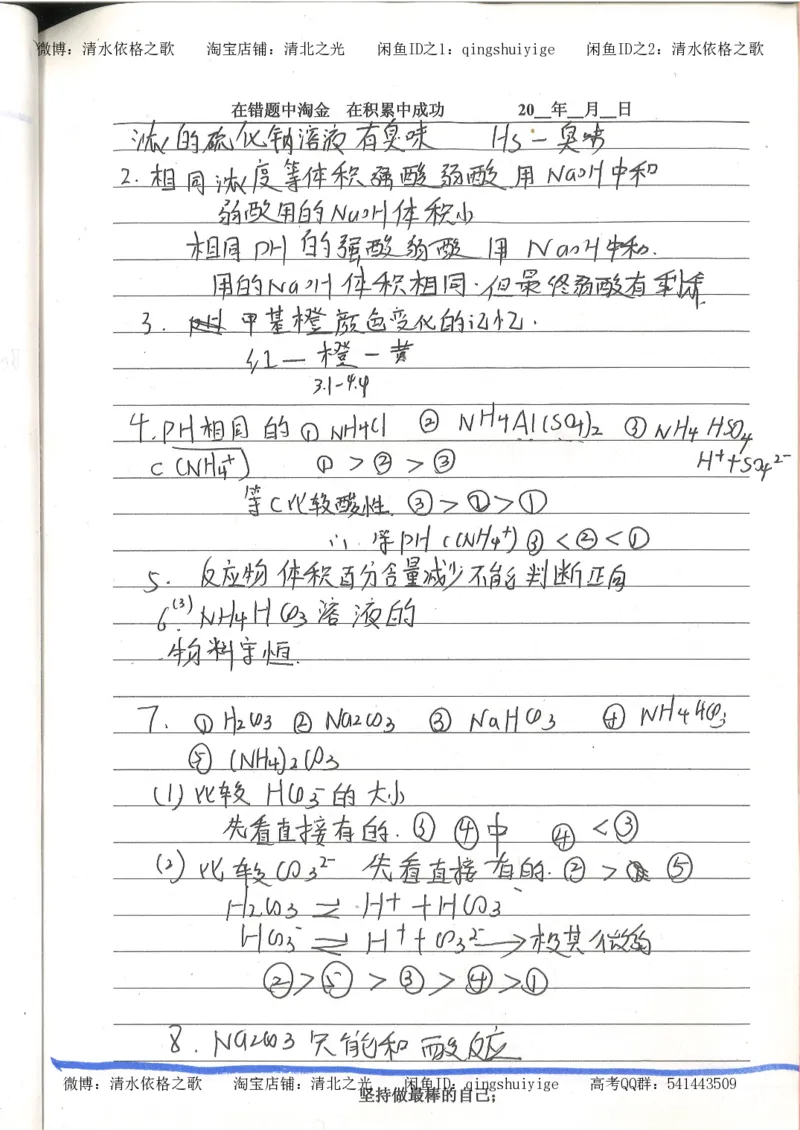 微博：清水依格之歌 淘宝店铺：清北之光 闲鱼ID之1：qingshuiyige 闲鱼ID之2：清水依格之歌
在错题中淘金 在积累中成功 20__年__月__日
浓的硫化钠溶液有臭味 HS－臭味
2. 相同浓度等体积强酸弱酸用NaOH中和
弱酸用的NaOH体积小
相同PH的强酸弱酸用NaOH中和.
用的NaOH体积相同.但最终弱酸有剩余
3. 甲基橙颜色变化的记忆.
红—橙—黄
3.1-4.4
4. PH相同的①NH4Cl ②NH4Al(SO4)2 ③NH4HSO4
H⁺+SO4²⁻
C(NH4⁺) ①>②>③
等C比较酸性 ③>②>①
∴等PH C(NH4⁺)③<②<①
5. 反应物体积百分含量减少不能判断正向
6.(3)NH4HCO3溶液的
物料守恒.
7. ①H2CO3 ②Na2CO3 ③NaHCO3 ④NH4HCO3
⑤(NH4)2CO3
(1)比较HCO3⁻的大小
先看直接有的.③④中 ④<③
(2)比较CO3²⁻ 先看直接有的.②>⑤
H2CO3⇌H⁺+HCO3⁻
HCO3⁻⇌H⁺+CO3²⁻→极其微弱
②>⑤>③>④>①
8. Na2CO3只能和酸反应
微博：清水依格之歌 淘宝店铺：清北之光 闲鱼ID：qingshuiyige 高考QQ群：541443509
坚持做最棒的自己;